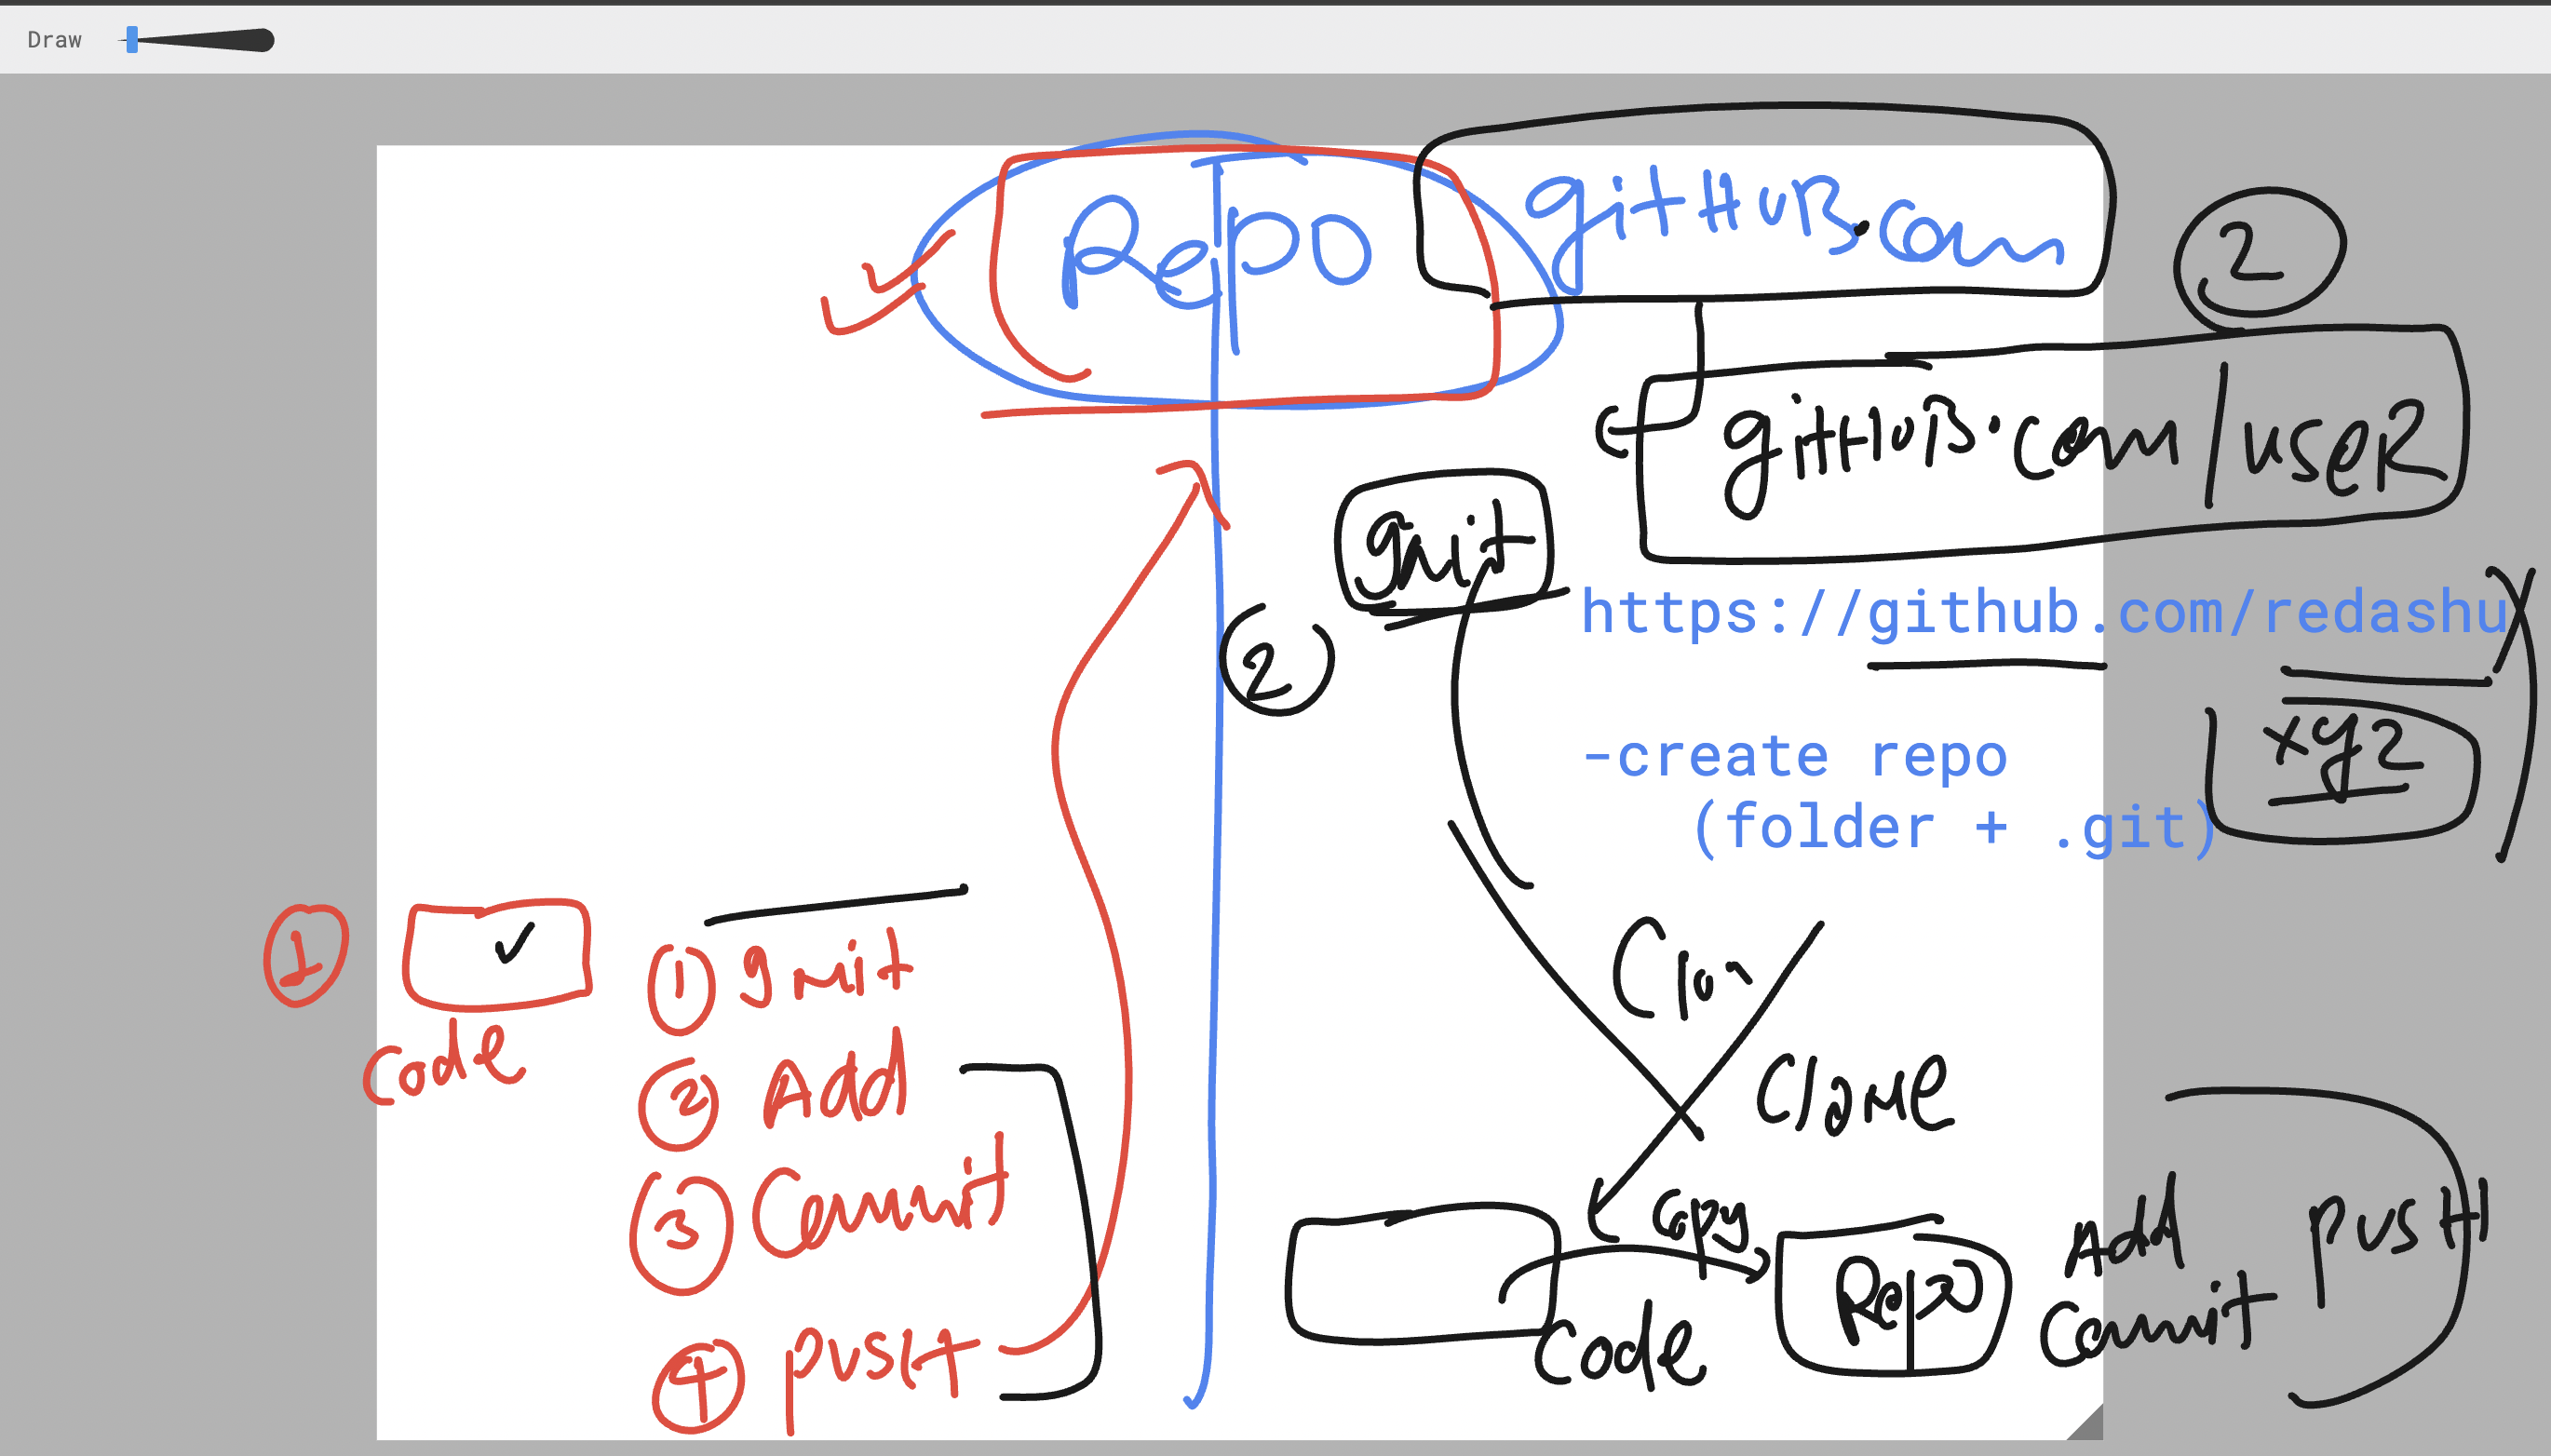 Draw
Repo
gitHUB.com
2
gitHUB.com/useR
init
https://github.com/redashu
2
xyz
-create repo
(folder + .git)
1
① init
Code
② Add
③ Commit
④ pusH
Clon
Clone
Copy
Code
Repo
Add
Commit
pusH